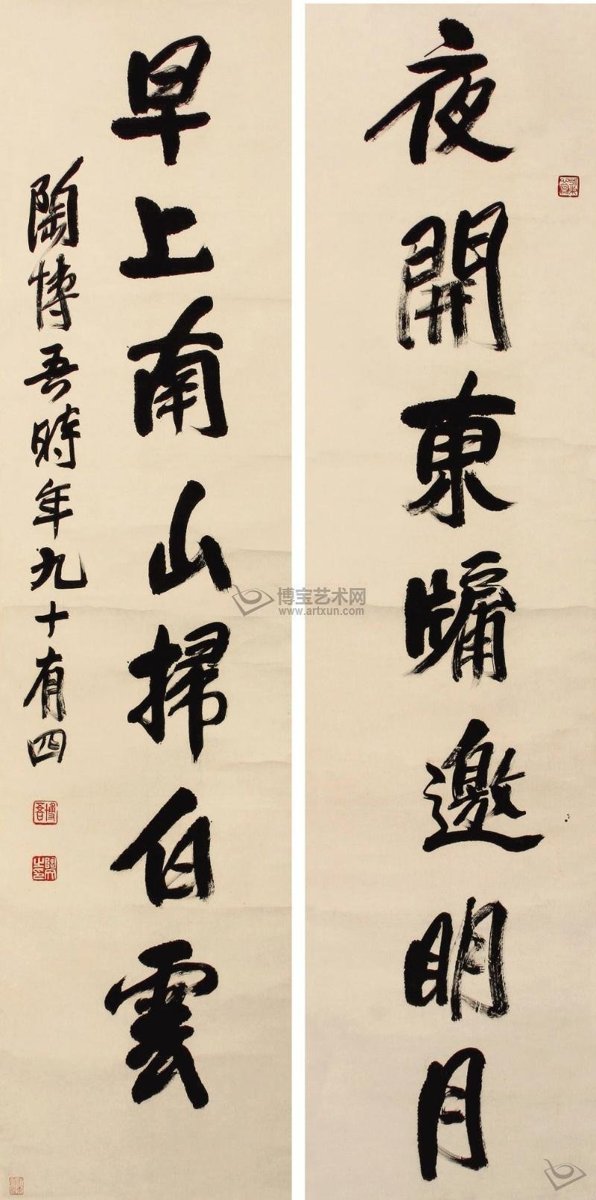 夜開東牖邀明月
早上南山掃白雲
陶博吾時年九十有四
博吾
博宝艺术网
www.artxun.com